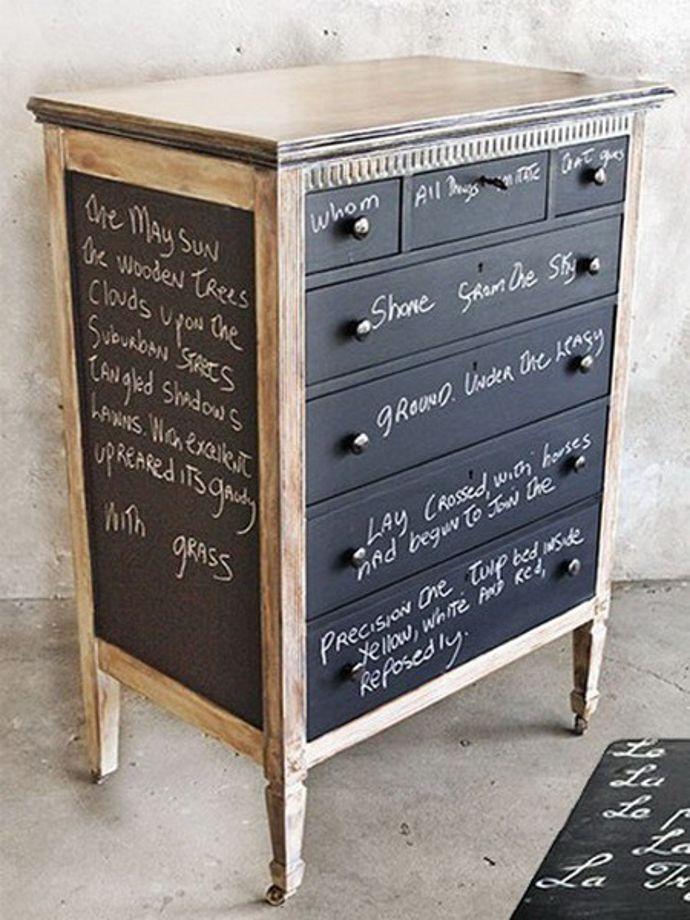 The May Sun
The wooden trees
Clouds upon the
Suburban streets
tangled shadows
Lawns. With excellent
upreared its gaudy
With grass
whom All things imitate that grows
Shone from the Sky
ground. Under the leafy
Lay crossed, with horses
had begun to join the
Precision the tulip bed inside
yellow, white and red,
reposedly.
Le
La
Le p
La
La Tr